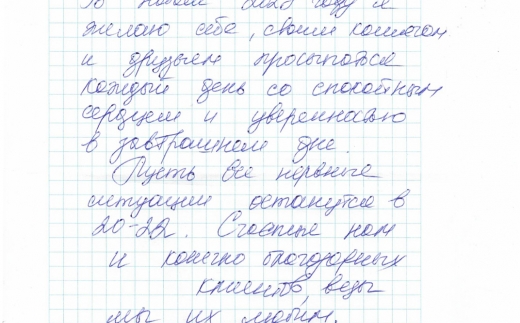 В новом 2023 году я
желаю себе, своим коллегам
и друзьям просыпаться
каждый день со спокойным
сердцем и уверенностью
в завтрашнем дне.
Пусть все нервные
ситуации останутся в
20-22. Счастье нам
и конечно благодарных
клиентов, ведь
мы их любим.